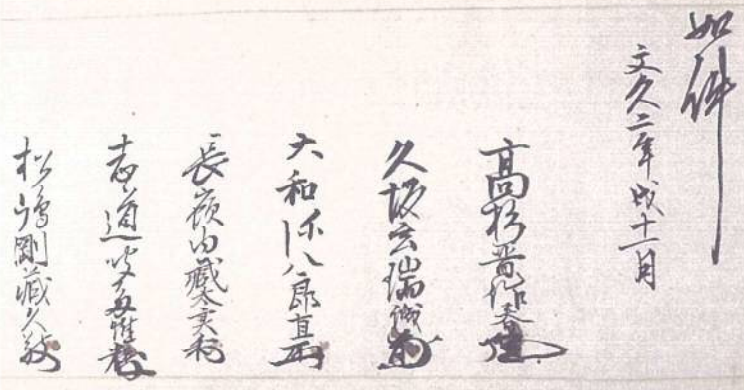 如件
文久二年戌十一月
高杉晋作春風
久坂玄瑞
大和弥八郎直利
長嶺内蔵太
志道聞多惟
松嶋剛蔵久敬